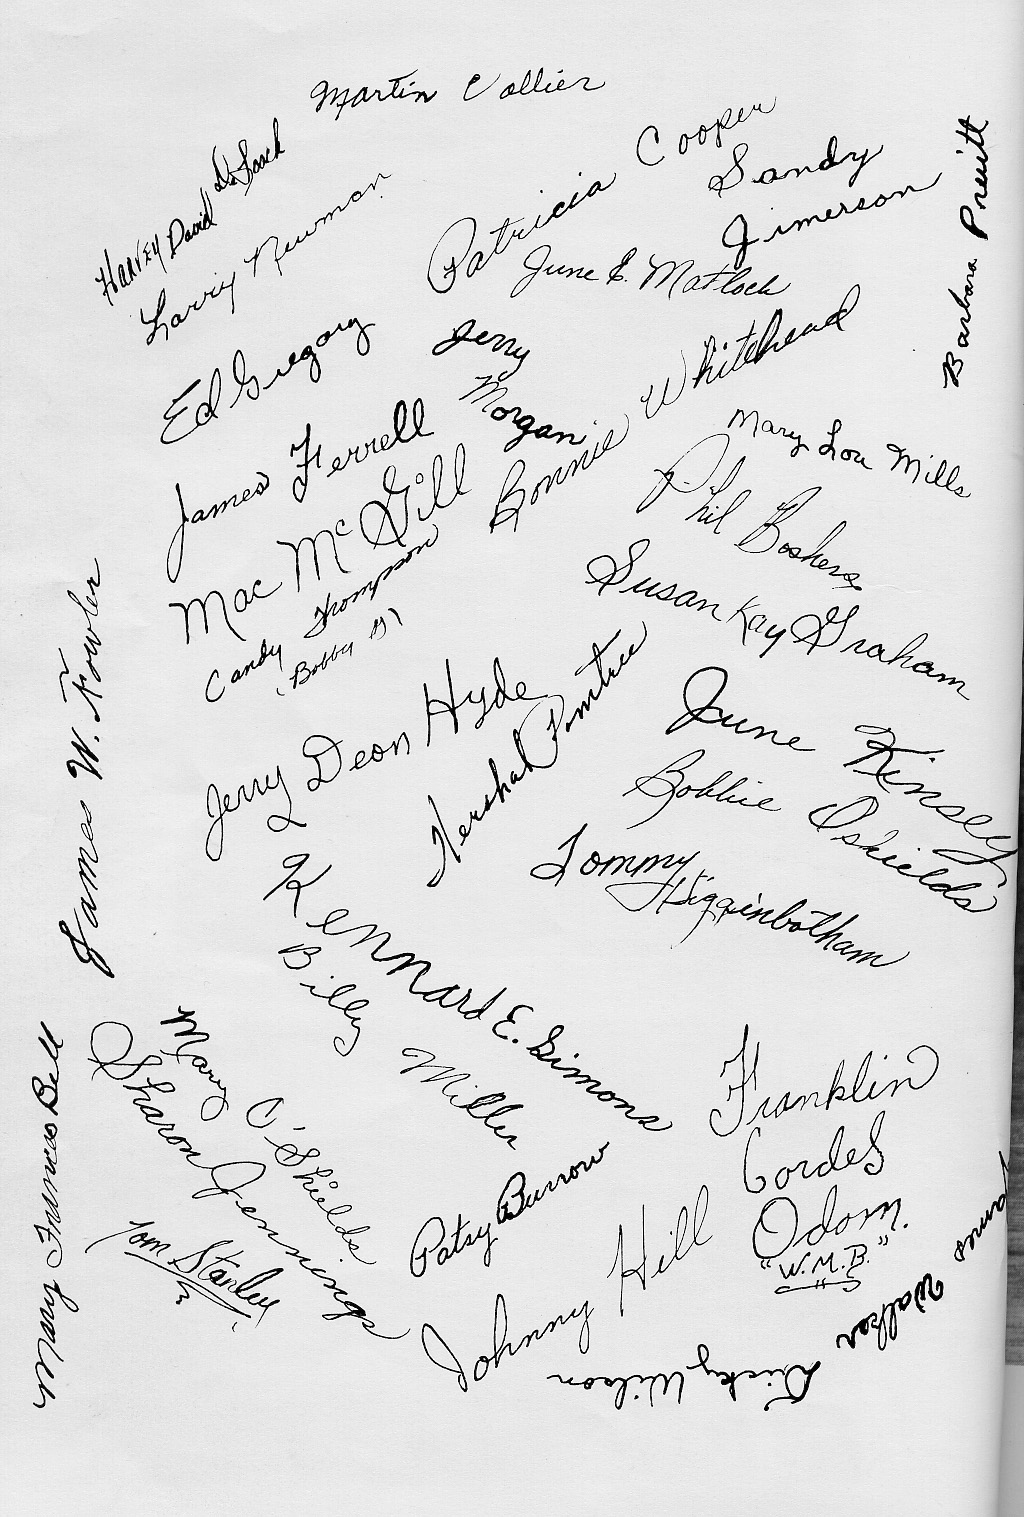 Martin Collier
Harvey David DeLoach
Larry Newman
Patricia Cooper
Sandy
Jimerson
Barbara Prewitt
June E. Matlock
Ed Gregory
Jerry
Morgan
Bonnie Whitehead
James Ferrell
Mary Lou Mills
Phil Boshers
Mac McGill
Candy Thompson
(Bobby G)
Susan Kay Graham
James W. Fowler
Jerry Deon Hyde
Hershal Pomtree
June Kinsey
Bobbie Oshields
Tommy Higginbotham
Kennard E. Simons
Billy Miller
Mary O'Shields
Sharon Jennings
Tom Stanley
Mary Frances Bell
Patsy Burrow
Franklin
Cordel
Odom
"W.M.B."
Johnny Hill
James Walker
Ricky Wilson